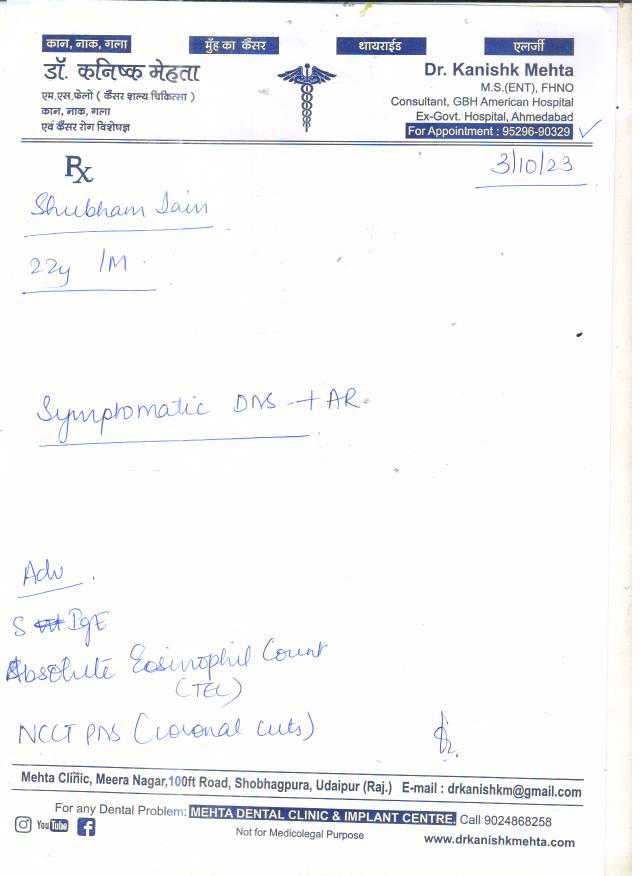 कान, नाक, गला
मुँह का कैंसर
थायराईड
एलर्जी
डॉ. कनिष्क मेहता
एम.एस.फेलो ( कैंसर शल्य चिकित्सा )
कान, नाक, गला
एवं कैंसर रोग विशेषज्ञ
Dr. Kanishk Mehta
M.S.(ENT), FHNO
Consultant, GBH American Hospital
Ex-Govt. Hospital, Ahmedabad
For Appointment : 95296-90329
Rx
3/10/23
Shubham Jain
22y /M.
Symptomatic DNS + AR
Adv.
S IgE
Absolute Eosinophil Count
(TEC)
NCCT PNS (coronal cuts)
Mehta Clinic, Meera Nagar,100ft Road, Shobhagpura, Udaipur (Raj.) E-mail : drkanishkm@gmail.com
For any Dental Problem: MEHTA DENTAL CLINIC & IMPLANT CENTRE. Call 9024868258
YouTube
Not for Medicolegal Purpose
www.drkanishkmehta.com